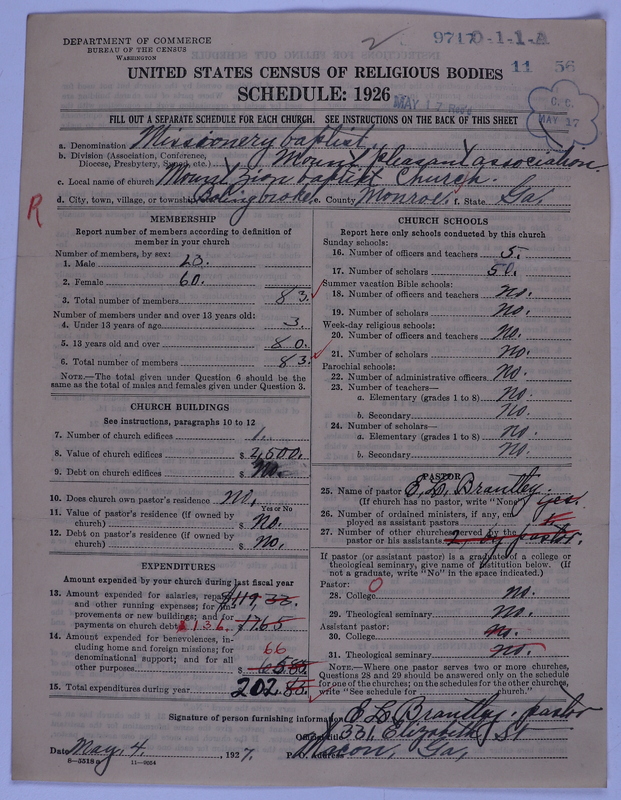 DEPARTMENT OF COMMERCE
BUREAU OF THE CENSUS
WASHINGTON
9717 0-1-1-A
11 56
UNITED STATES CENSUS OF RELIGIOUS BODIES
SCHEDULE: 1926
MAY 17 Rec'd
C. C.
MAY 17
FILL OUT A SEPARATE SCHEDULE FOR EACH CHURCH. SEE INSTRUCTIONS ON THE BACK OF THIS SHEET
a. Denomination Missionery baptist
b. Division (Association, Conference, Diocese, Presbytery, Synod, etc.) Mount pleasant association.
c. Local name of church Mount Zion baptist Church.
d. City, town, village, or township Bolingbroke, e. County Monroe, f. State Ga,
R
MEMBERSHIP
Report number of members according to definition of
member in your church
Number of members, by sex:
1. Male 23.
2. Female 60.
3. Total number of members 83.
Number of members under and over 13 years old:
4. Under 13 years of age 3.
5. 13 years old and over 80.
6. Total number of members 83.
NOTE.—The total given under Question 6 should be the
same as the total of males and females given under Question 3.
CHURCH BUILDINGS
See instructions, paragraphs 10 to 12
7. Number of church edifices 1.
8. Value of church edifices $ 4500.
9. Debt on church edifices $ No.
10. Does church own pastor's residence no.
Yes or No
11. Value of pastor's residence (if owned by
church) $ No.
12. Debt on pastor's residence (if owned by
church) $ No.
EXPENDITURES
Amount expended by your church during last fiscal year
13. Amount expended for salaries, repairs,
and other running expenses; for im-
provements or new buildings; and for
payments on church debt $136. 1765
14. Amount expended for benevolences, in-
cluding home and foreign missions; for
denominational support; and for all
other purposes 66
15. Total expenditures during year 202.
CHURCH SCHOOLS
Report here only schools conducted by this church
Sunday schools:
16. Number of officers and teachers 5.
17. Number of scholars 50.
Summer vacation Bible schools:
18. Number of officers and teachers no.
19. Number of scholars no.
Week-day religious schools:
20. Number of officers and teachers no.
21. Number of scholars no.
Parochial schools:
22. Number of administrative officers no.
23. Number of teachers—
a. Elementary (grades 1 to 8) no.
b. Secondary no.
24. Number of scholars—
a. Elementary (grades 1 to 8) no.
b. Secondary no.
PASTOR
25. Name of pastor E. L. Brantley.
(If church has no pastor, write "None") yes.
26. Number of ordained ministers, if any, em-
ployed as assistant pastors
27. Number of other churches served by the
pastor or his assistants 2 by pastor.
If pastor (or assistant pastor) is a graduate of a college or
theological seminary, give name of institution below. (If
not a graduate, write "No" in the space indicated.)
Pastor: O
28. College no.
29. Theological seminary no.
Assistant pastor:
30. College no.
31. Theological seminary no.
NOTE.—Where one pastor serves two or more churches,
Questions 28 and 29 should be answered only on the schedule
for one of the churches; on the schedules for the other churches,
write "See schedule for church."
Signature of person furnishing information E L Brantley. pastor
Official title 331, Elizabeth St
Date May, 4, 1927. P. O. Address Macon, Ga,
8—5518 a 11—9054